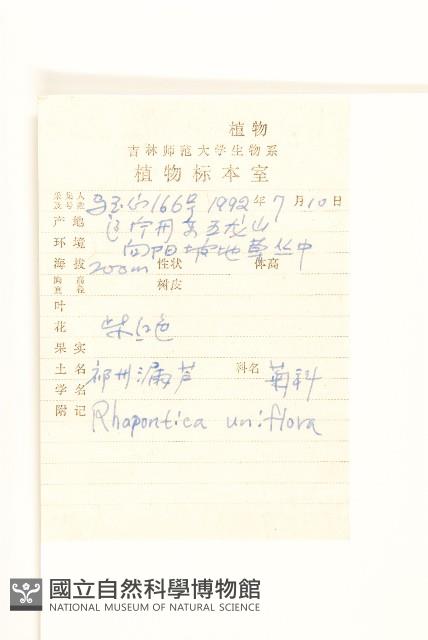 植物
吉林师范大学生物系
植物标本室
采集人及号数 166号 1992年7月10日
产地 辽宁丹东五龙山
环境 向阳坡地草丛中
海拔 200m 性状 体高
胸高直径 树皮
叶
花 紫红色
果实
土名 祁州漏芦 科名 菊科
学名
附记 Rhapontica uniflora
國立自然科學博物館
NATIONAL MUSEUM OF NATURAL SCIENCE